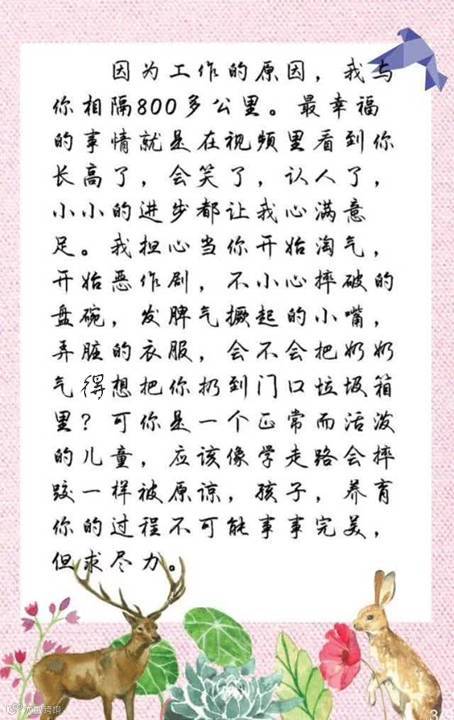 因为工作的原因，我与
你相隔800多公里。最幸福
的事情就是在视频里看到你
长高了，会笑了，认人了，
小小的进步都让我心满意
足。我担心当你开始淘气，
开始恶作剧，不小心摔破的
盘碗，发脾气撅起的小嘴，
弄脏的衣服，会不会把奶奶
气得想把你扔到门口垃圾箱
里？可你是一个正常而活泼
的儿童，应该像学走路会摔
跤一样被原谅，孩子，养育
你的过程不可能事事完美，
但求尽力。